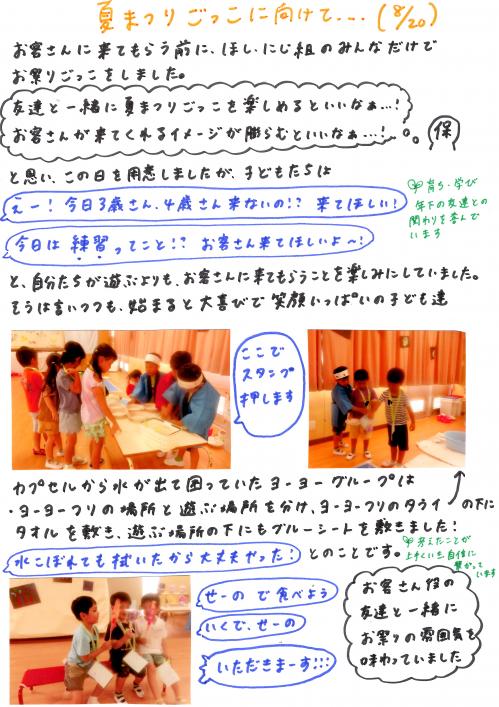 夏まつりごっこに向けて....(8/20)
お客さんに来てもらう前に、ほし、にじ組のみんなだけで
お祭りごっこをしました。
友達と一緒に夏まつりごっこを楽しめるといいなぁ...!
お客さんが来てくれるイメージが膨らむといいなぁ...!
保
と思い、この日を用意しましたが、子どもたちは
えー!今日3歳さん、4歳さん来ないの!?来てほしい!
今日は練習ってこと!?お客さん来てほしいよ〜!
育ち・学び
年下の友達との
関わりを喜んで
います
と、自分たちが遊ぶよりも、お客さんに来てもらうことを楽しみにしていました。
そうは言いつつも、始まると大喜びで笑顔いっぱいの子ども達
ここで
スタンプ
押します
カプセルから水が出て困っていたヨーヨーグループは
・ヨーヨーフリの場所と遊ぶ場所を分け、ヨーヨーフリのタライの下に
タオルを敷き、遊ぶ場所の下にもブルーシートを敷きました!
水こぼれても拭いたから大丈夫やった!とのことです。
考えたことが
上手くいき自信に
繋がっています
せーので食べよう
いくで、せーの
いただきまーす!!!
お客さん役の
友達と一緒に
お祭りの雰囲気を
味わっていました